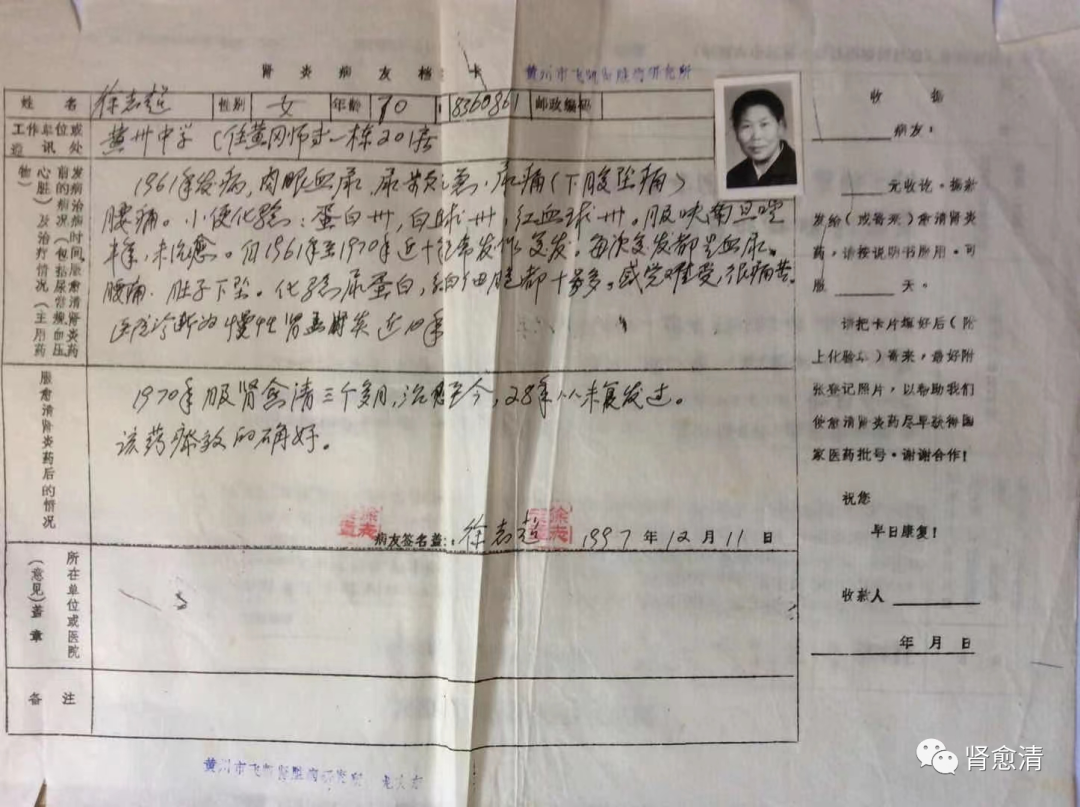 肾炎病友档 卡 黄州市飞 肾脏病研究所
姓名 徐志 性别 女 年龄 70 8360861 邮政编码
工作单位或通讯处 黄州中学(住黄冈师 一栋201房
发病时间、服愈清肾炎药前的病况(包括尿常规、血压、心脏)及治疗情况(主用药物)
1961年发病,肉眼血尿、尿 、尿痛(下腹坠痛)
腰痛。小便化验:蛋白卅,白血球卅,红血球卅。服呋喃旦啶
未治愈。自1961年至1970年近十 常发作 复发。每次复发都是血尿。
腰痛 肚子下坠。化验尿蛋白, 细胞都十多。感觉难受,很痛苦。
医院诊断为慢性肾盂肾炎近10年
服愈清肾炎药后的情况
1970年服肾愈清三个多月,治愈至今,28年从未复发过。
该药疗效的确好。
病友签名盖: 徐志 1997年12月11日
所在单位或医院(意见)盖章
备注
黄州市飞 肾脏病研究所
收据
病友:
元收讫。据新
发给(或寄来)愈清肾炎
药,请按说明书服用。可
服 天。
请把卡片填好后(附
上化验单)寄来,最好附
张登记照片,以帮助我们
使愈清肾炎药尽早获得国
家医药批号·谢谢合作!
祝您
早日康复!
收款人
年 月 日
肾愈清